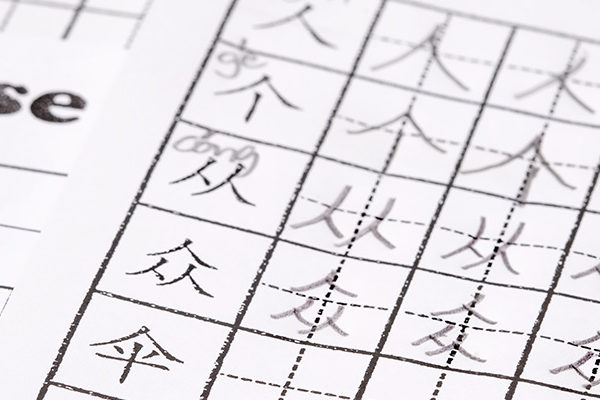 se
人 人 人
ge
个 个 个
cóng
从 从 从
众 众 众
伞